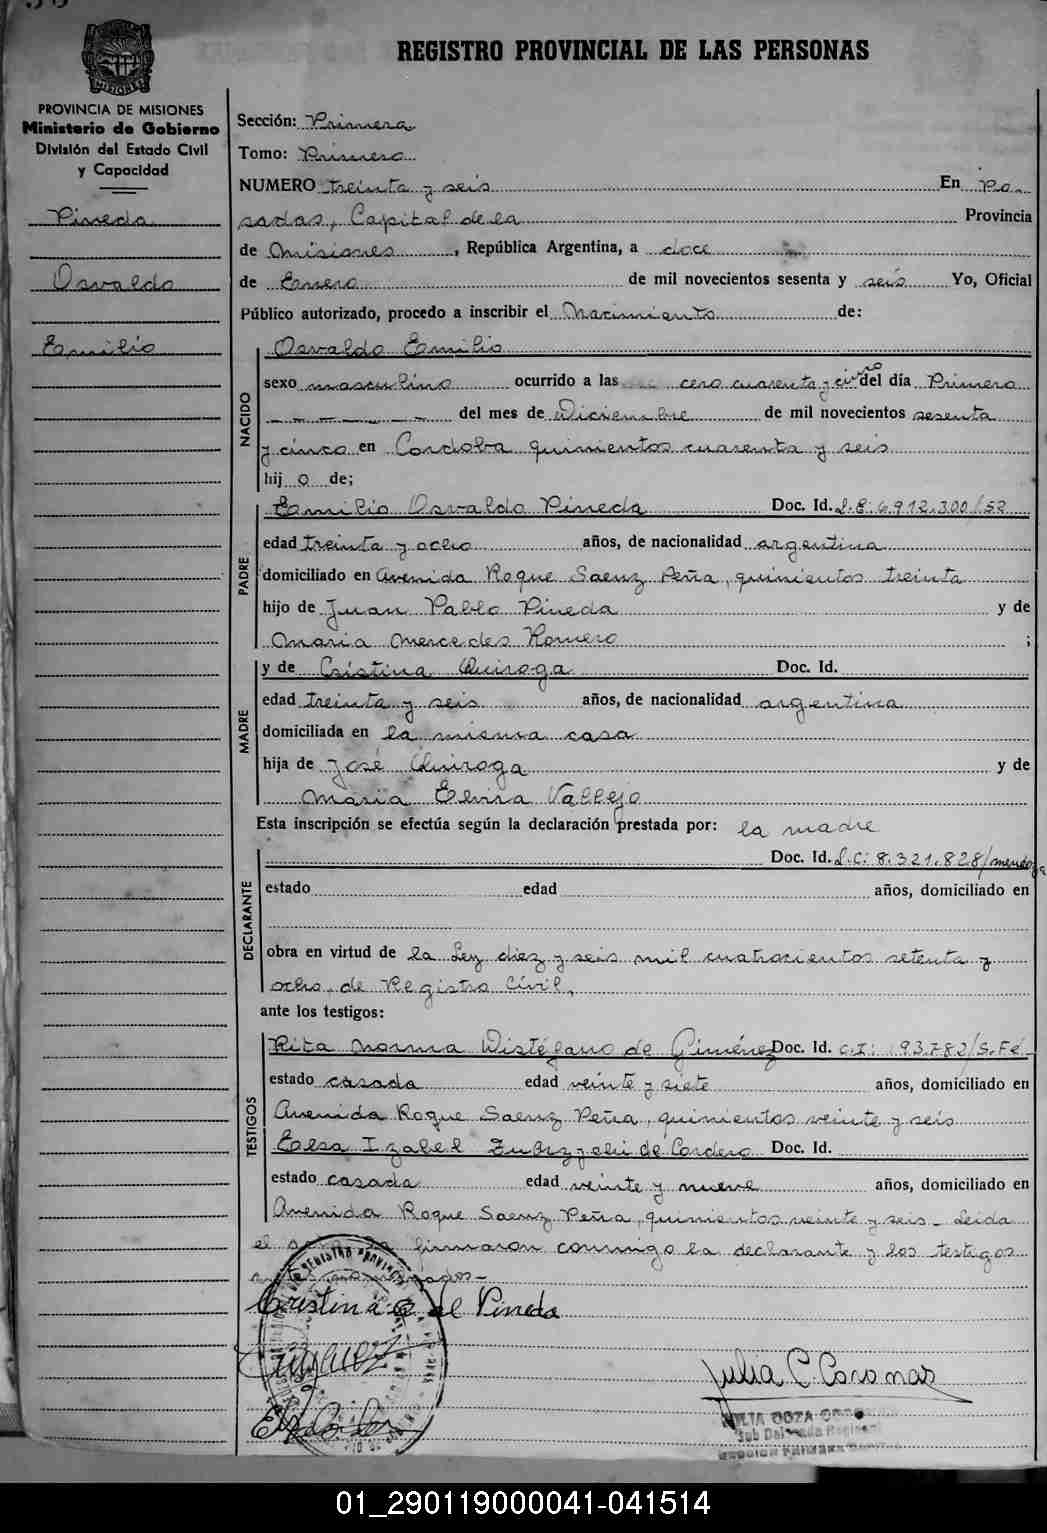 REGISTRO PROVINCIAL DE LAS PERSONAS
MISIONES
PROVINCIA DE MISIONES
Ministerio de Gobierno
División del Estado Civil
y Capacidad
Pineda
Osvaldo
Emilio
Sección: Primera
Tomo: Primero
NUMERO treinta y seis En Po-
sadas, Capital de la Provincia
de Misiones, República Argentina, a doce
de Enero de mil novecientos sesenta y seis Yo, Oficial
Público autorizado, procedo a inscribir el Nacimiento de:
NACIDO
Osvaldo Emilio
sexo masculino ocurrido a las cero cuarenta y cinco del día Primero
del mes de Diciembre de mil novecientos sesenta
y cinco en Cordoba quinientos cuarenta y seis
hijo de;
PADRE
Emilio Osvaldo Pineda Doc. Id. L.E. 6.912.300/52
edad treinta y ocho años, de nacionalidad argentina
domiciliado en Avenida Roque Saenz Peña, quinientos treinta
hijo de Juan Pablo Pineda y de
Maria Mercedes Romero ;
MADRE
y de Cristina Quiroga Doc. Id.
edad treinta y seis años, de nacionalidad argentina
domiciliada en la misma casa
hija de José Quiroga y de
Maria Elvira Vallejo
Esta inscripción se efectúa según la declaración prestada por: la madre
DECLARANTE
Doc. Id. L.C: 8.321.828/mendoza
estado edad años, domiciliado en
obra en virtud de la Ley diez y seis mil cuatrocientos setenta y
ocho, de Registro Civil,
ante los testigos:
TESTIGOS
Rita Norma Distéfano de Giménez Doc. Id. C.I: 193.782/S.Fé
estado casada edad veinte y siete años, domiciliado en
Avenida Roque Saenz Peña, quinientos veinte y seis
Elsa Izabel de Cordero Doc. Id.
estado casada edad veinte y nueve años, domiciliado en
Avenida Roque Saenz Peña, quinientos veinte y seis - Leida
el firmaron conmigo la declarante y los testigos
Cristina Q de Pineda
Julia C. Coronas
JULIA
Sub Delegada
01_290119000041-041514